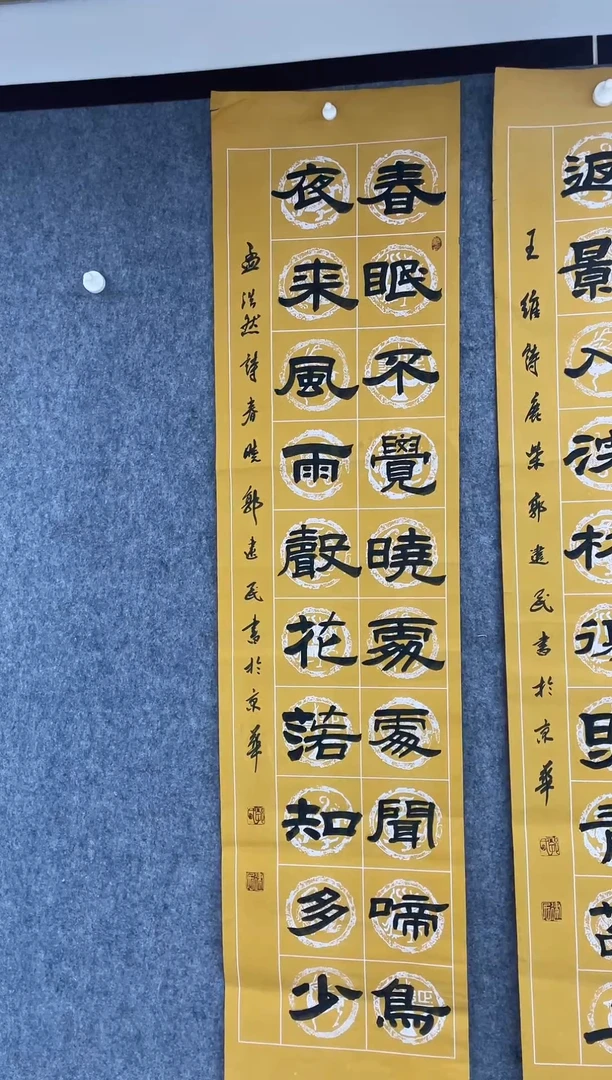 返景入
王維詩鹿柴郭建民書於京華
春眠不覺曉處處聞啼鳥
夜来風雨聲花落知多少
孟浩然詩春曉郭建民書於京華